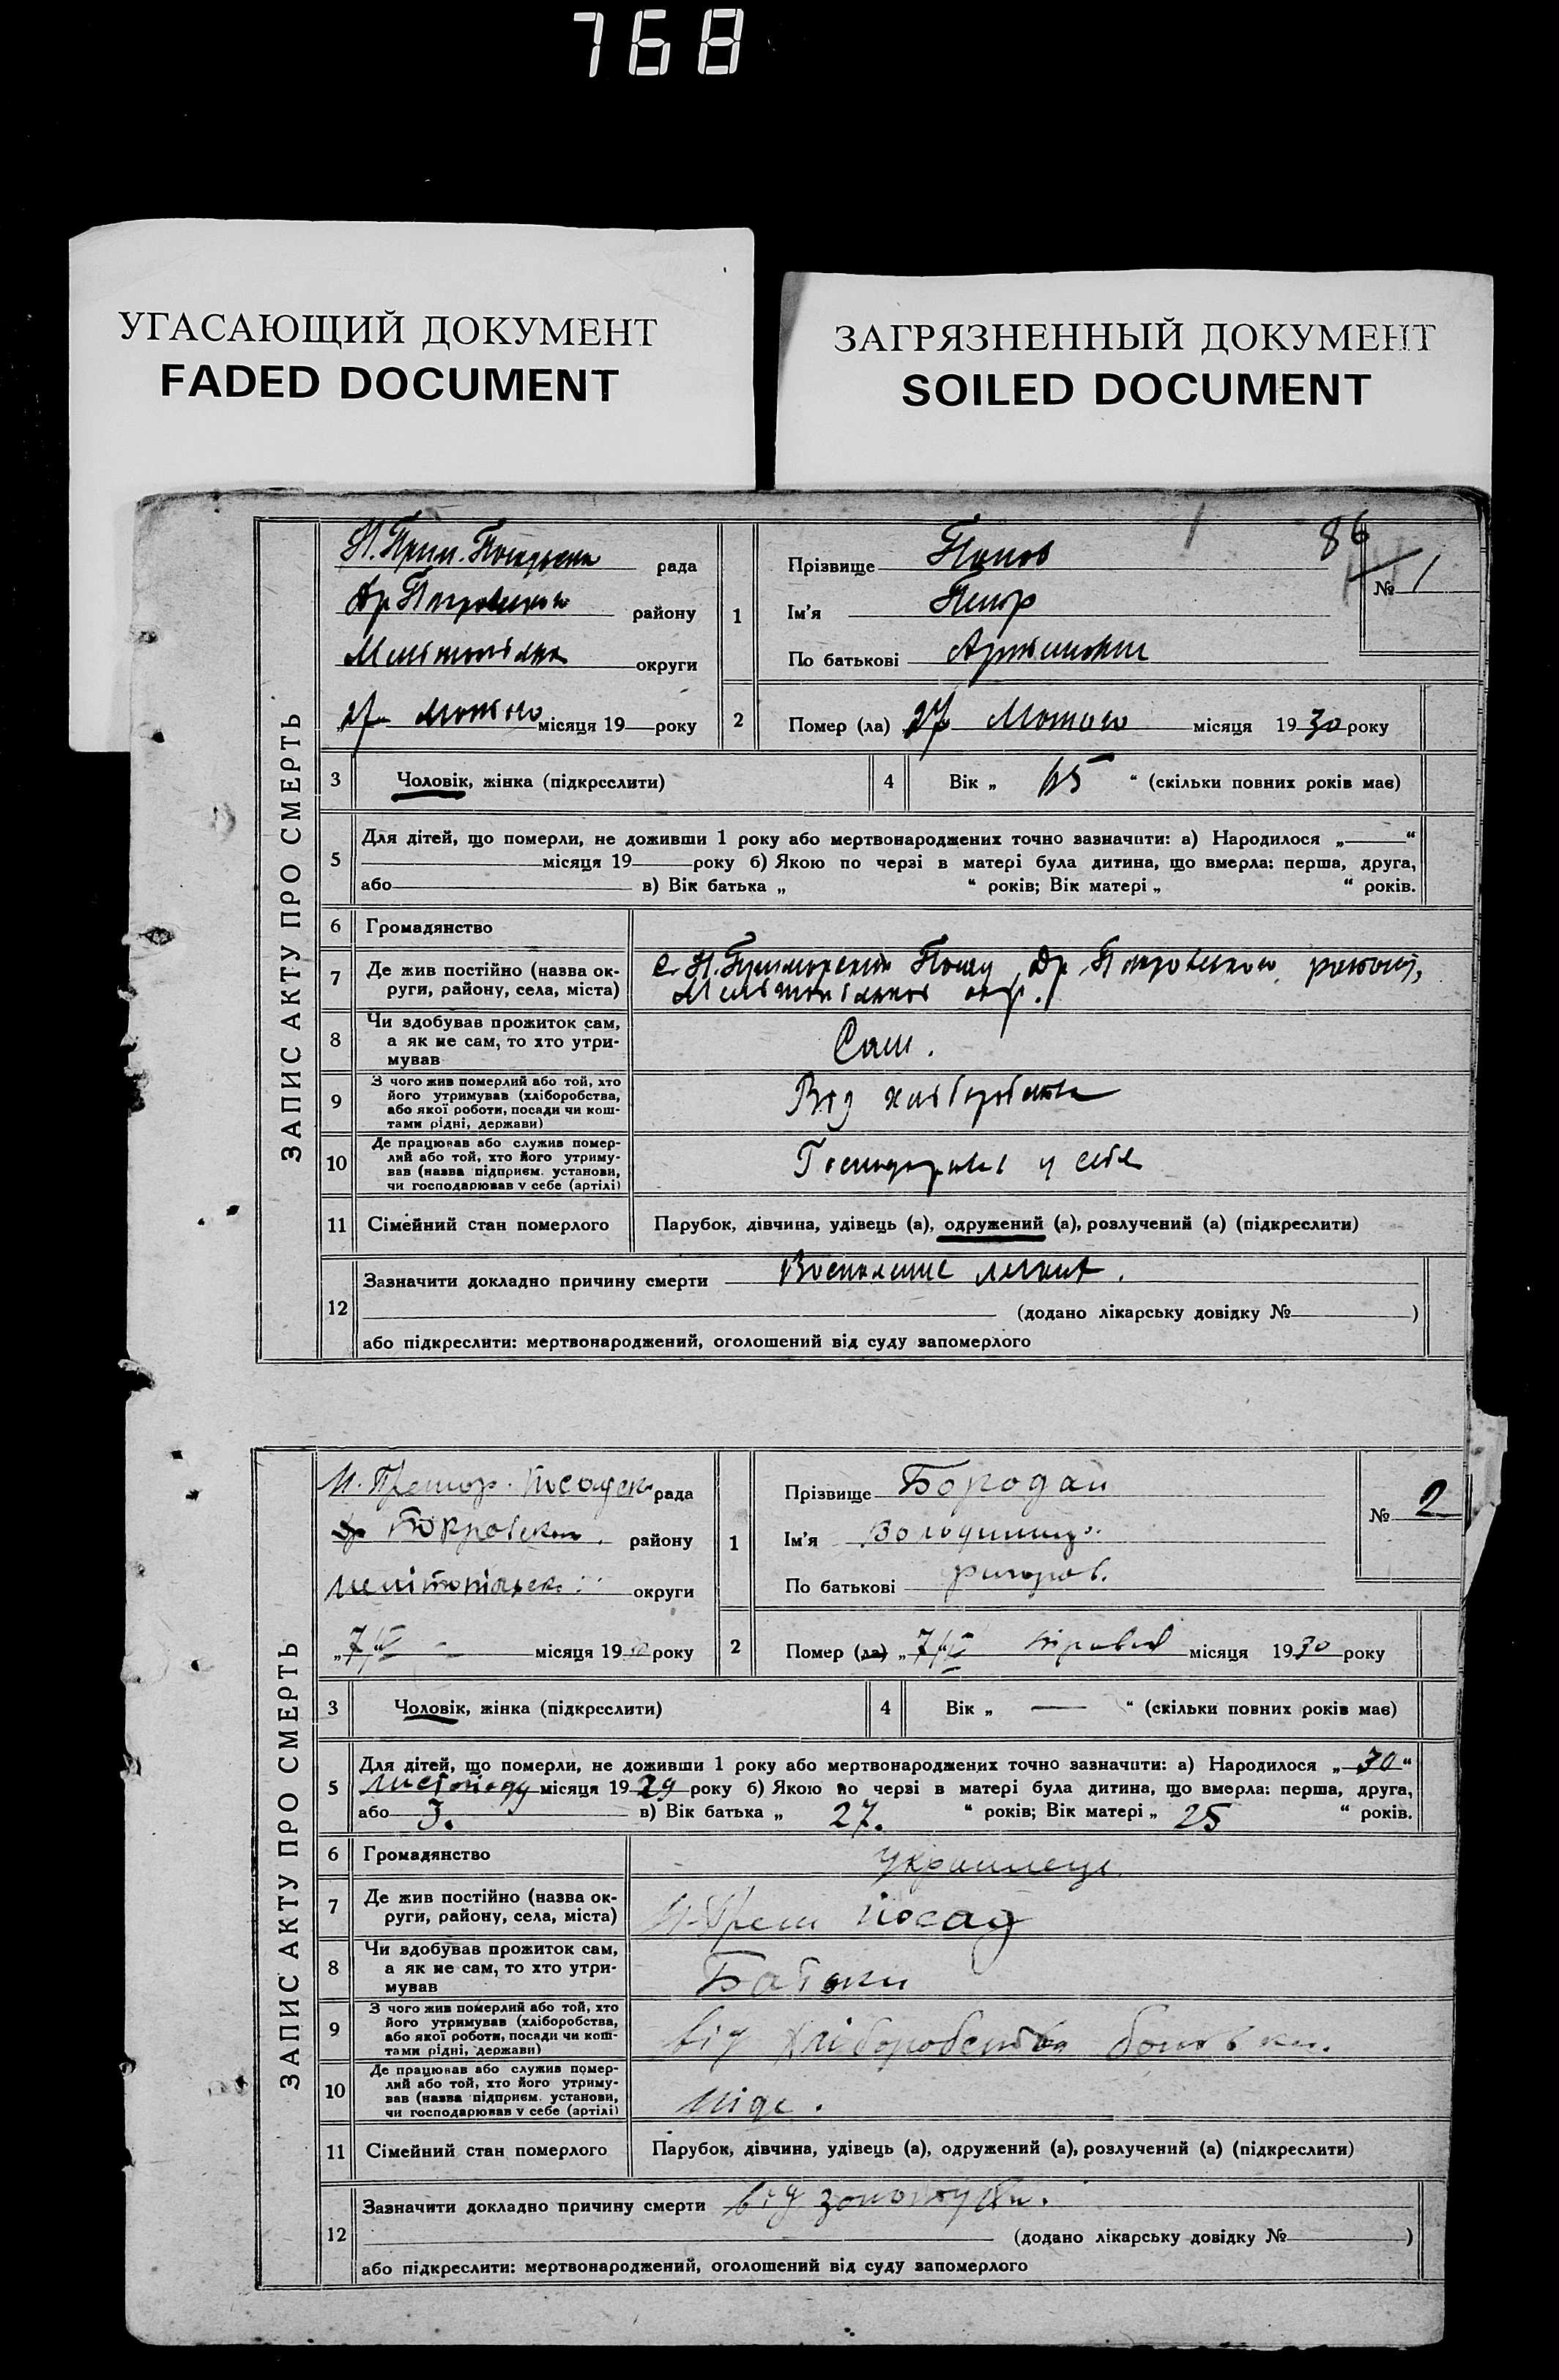 768
УГАСАЮЩИЙ ДОКУМЕНТ
FADED DOCUMENT
ЗАГРЯЗНЕННЫЙ ДОКУМЕНТ
SOILED DOCUMENT
ЗАПИС АКТУ ПРО СМЕРТЬ
86
№ 1
Н. Прим. рада
району
округи
27 Лютого місяця 19 року
1
Прізвище Попов
Ім'я Петр
По батькові
2 Помер (ла) 27 Лютого місяця 1930 року
3 Чоловік, жінка (підкреслити)
4 Вік „ 65 “ (скільки повних років має)
5 Для дітей, що померли, не доживши 1 року або мертвонароджених точно зазначити: а) Народилося „ “
місяця 19 року б) Якою по черзі в матері була дитина, що вмерла: перша, друга,
або в) Вік батька „ “ років; Вік матері „ “ років.
6 Громадянство
7 Де жив постійно (назва ок-
руги, району, села, міста)
с. Н. Приморский Посад, Др. Покровського району,
Мелітопільської окр.
8 Чи здобував прожиток сам,
а як не сам, то хто утри-
мував
Сам.
9 З чого жив померлий або той, хто
його утримував (хліборобства,
або якої роботи, посади чи кош-
тами рідні, держави)
Від хліборобства
10 Де працював або служив помер-
лий або той, хто його утриму-
вав (назва підприєм. установи,
чи господарював у себе (артілі)
Господарював у себе
11 Сімейний стан померлого
Парубок, дівчина, удівець (а), одружений (а), розлучений (а) (підкреслити)
12 Зазначити докладно причину смерти Воспаление легких.
(додано лікарську довідку № )
або підкреслити: мертвонароджений, оголошений від суду запомерлого
ЗАПИС АКТУ ПРО СМЕРТЬ
№ 2
рада
району
округи
місяця 1930 року
1
Прізвище Бородай
Ім'я Володимир
По батькові Григоров.
2 Помер (ла) „ місяця 1930 року
3 Чоловік, жінка (підкреслити)
4 Вік „ — “ (скільки повних років має)
5 Для дітей, що померли, не доживши 1 року або мертвонароджених точно зазначити: а) Народилося „ 30 “
листопаду місяця 1929 року б) Якою по черзі в матері була дитина, що вмерла: перша, друга,
або 3. в) Вік батька „ 27. “ років; Вік матері „ 25 “ років.
6 Громадянство
українець
7 Де жив постійно (назва ок-
руги, району, села, міста)
Н-Прем Посад
8 Чи здобував прожиток сам,
а як не сам, то хто утри-
мував
Батьки
9 З чого жив померлий або той, хто
його утримував (хліборобства,
або якої роботи, посади чи кош-
тами рідні, держави)
від хліборобства батьки.
10 Де працював або служив помер-
лий або той, хто його утриму-
вав (назва підприєм. установи,
чи господарював у себе (артілі)
ніде.
11 Сімейний стан померлого
Парубок, дівчина, удівець (а), одружений (а), розлучений (а) (підкреслити)
12 Зазначити докладно причину смерти від
(додано лікарську довідку № )
або підкреслити: мертвонароджений, оголошений від суду запомерлого